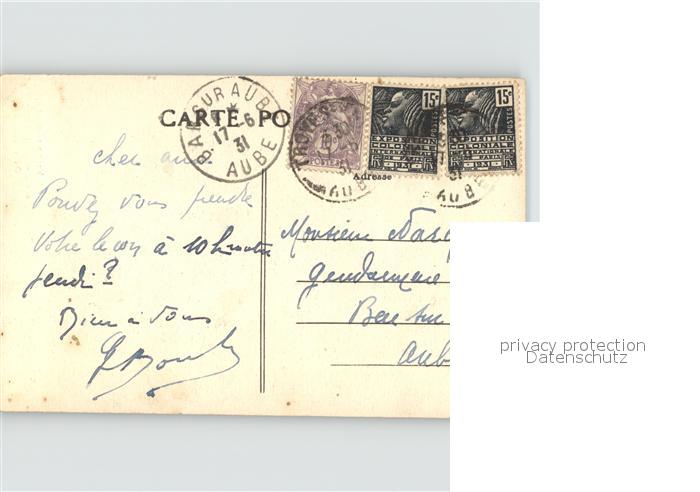 CARTE PO
BAR SUR AUBE
17-6
31
AUBE
TROYES
31
AUBE
POSTES
15c
EXPOSITION
COLONIALE
INTERNATIONALE
DE PARIS
1931
POSTES
15c
EXPOSITION
COLONIALE
INTERNATIONALE
DE PARIS
1931
POSTES
AUBE
Adresse
cher ami
Pouvez vous prendre
Votre leçon à 10h matin
jeudi ?
Bien à Vous
Monsieur
Gendarmerie
Bar sur
Aub
privacy protection
Datenschutz